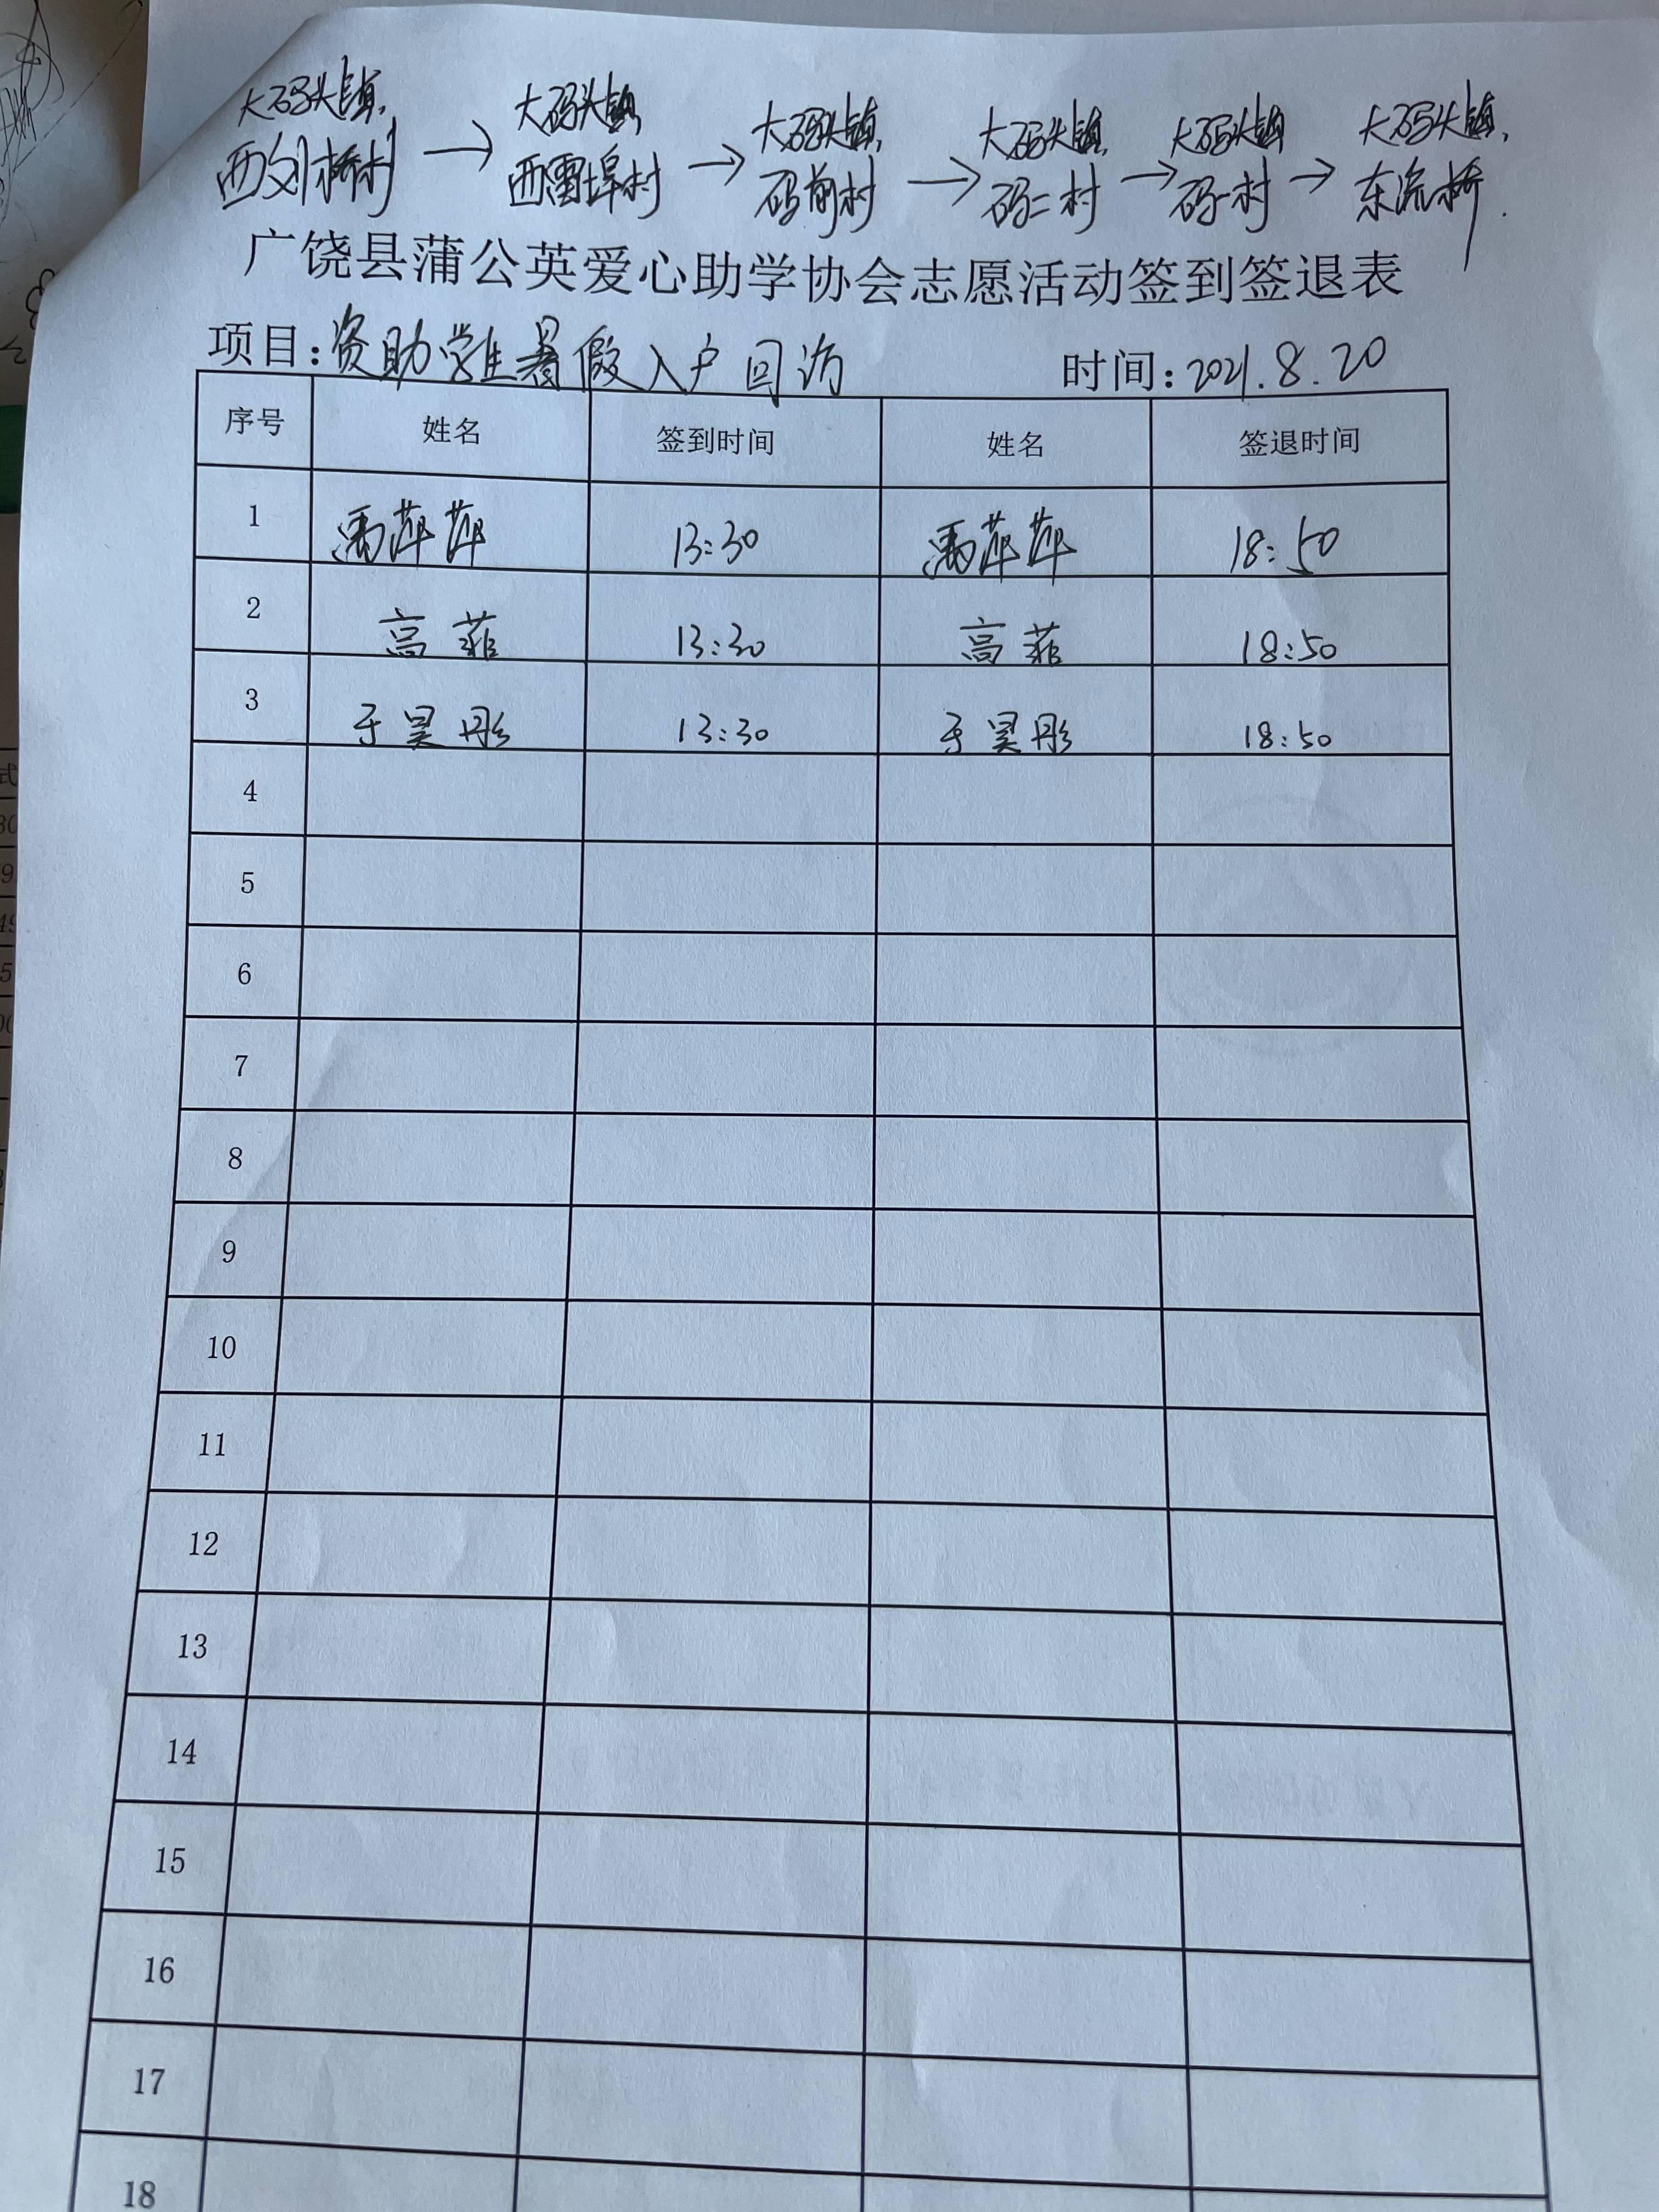 大码头镇, 大码头镇 大码头镇, 大码头镇, 大码头镇 大码头镇,
西刘桥村 → 西雷埠村 → 码前村 → 码二村 → 码一村 → 东流桥.
广饶县蒲公英爱心助学协会志愿活动签到签退表
项目:资助学生暑假入户回访 时间:2021.8.20
序号 姓名 签到时间 姓名 签退时间
1 萍萍 13:30 萍萍 18:50
2 高菲 13:30 高菲 18:50
3 于昊彤 13:30 于昊彤 18:50
4
5
6
7
8
9
10
11
12
13
14
15
16
17
18